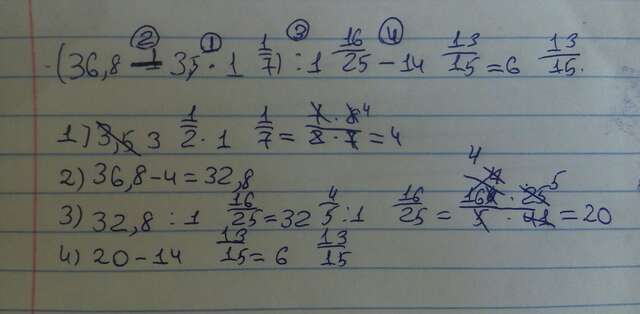 (36,8 - 3,5 · 1 1/7) : 1 16/25 - 14 13/15 = 6 13/15.
1) 3 1/2 · 1 1/7 = 7 · 8 4 / 2 · 7 = 4
2) 36,8 - 4 = 32,8
3) 32,8 : 1 16/25 = 32 4/5 : 1 16/25 = 164 4 · 25 5 / 5 · 41 = 20
4) 20 - 14 13/15 = 6 13/15